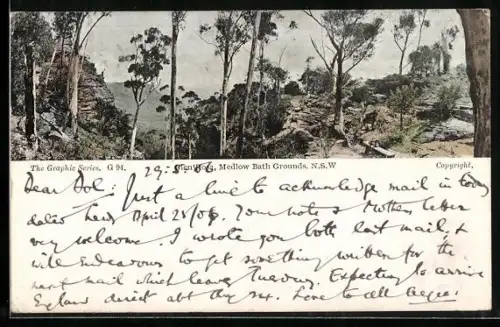 The Graphic Series. G 94. Medlow Bath Grounds. N.S.W Copyright.
Dear Dol: Just a line to acknowledge mail in today
dated April 25/06. Your note & Mothers letter
very welcome. I wrote you both last mail, &
will endeavour to get something written for the
next mail which leaves Tuesday. Expecting to arrive
England direct abt Love to all